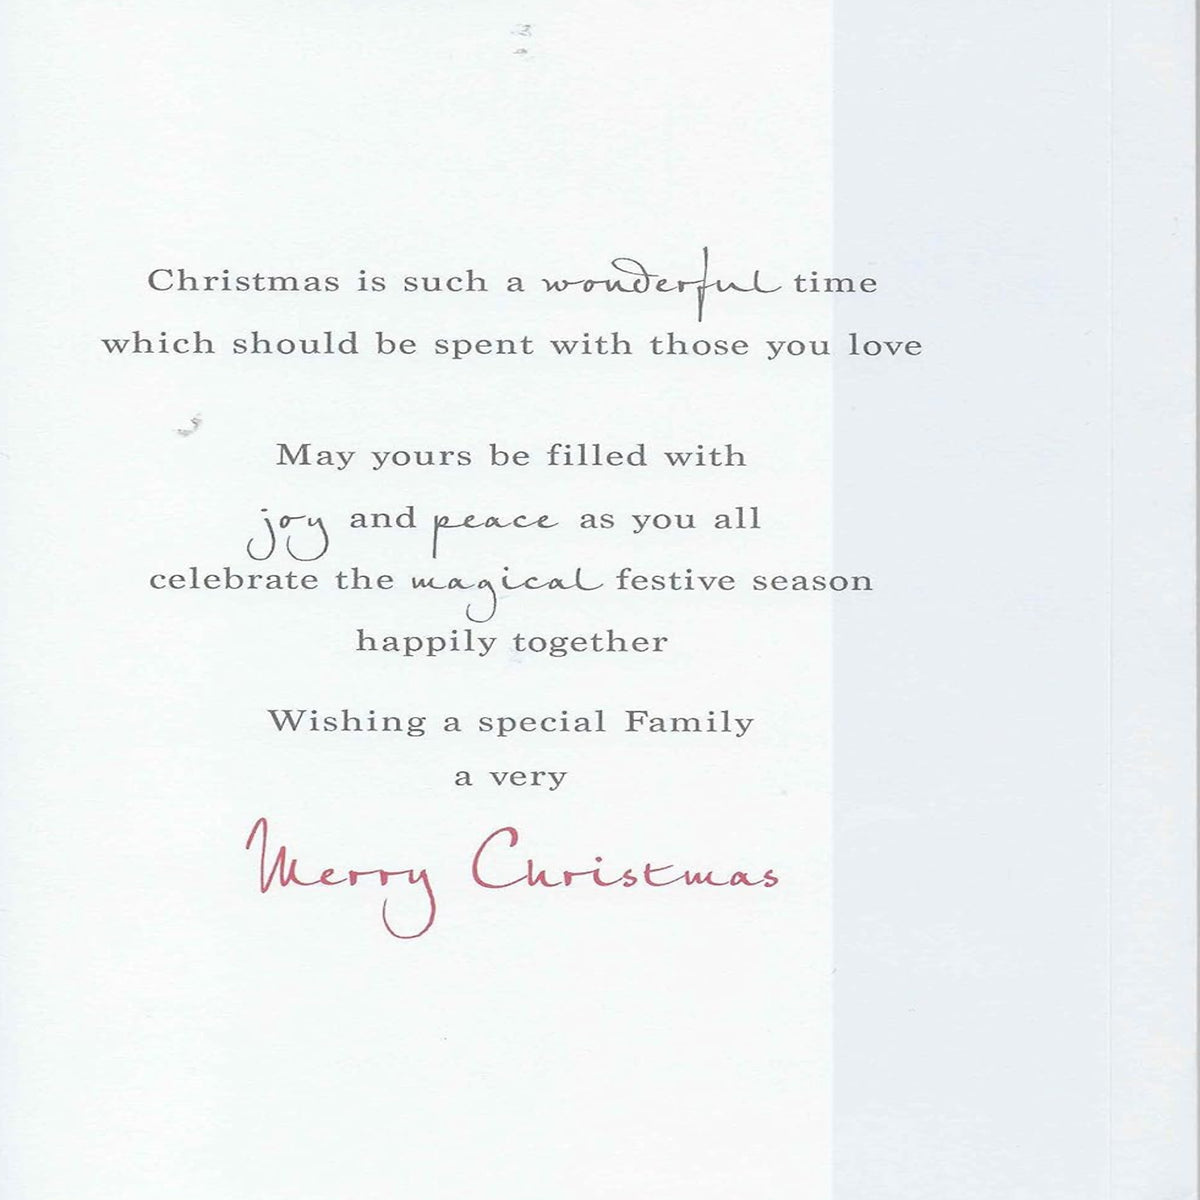 Christmas is such a wonderful time
which should be spent with those you love
May yours be filled with
joy and peace as you all
celebrate the magical festive season
happily together
Wishing a special Family
a very
Merry Christmas